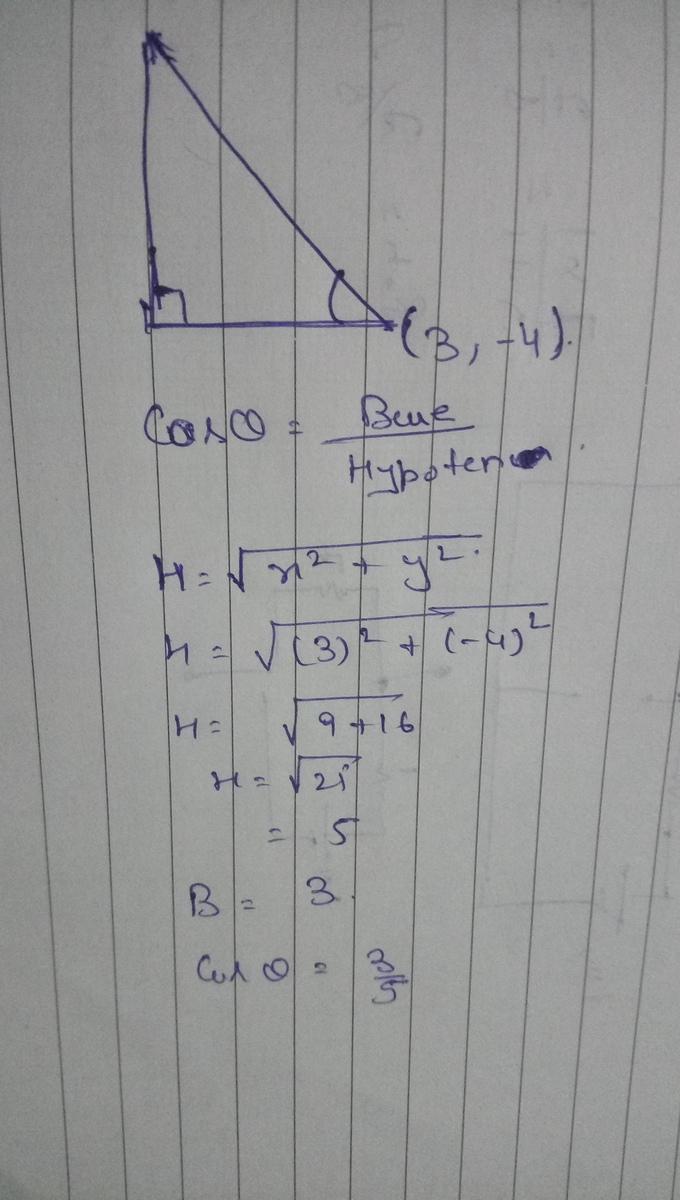 (3, -4).
Cos θ = Base / Hypoten
H = √x² + y²
H = √(3)² + (-4)²
H = √9+16
H = √25
= 5
B = 3.
Cos θ = 3/5